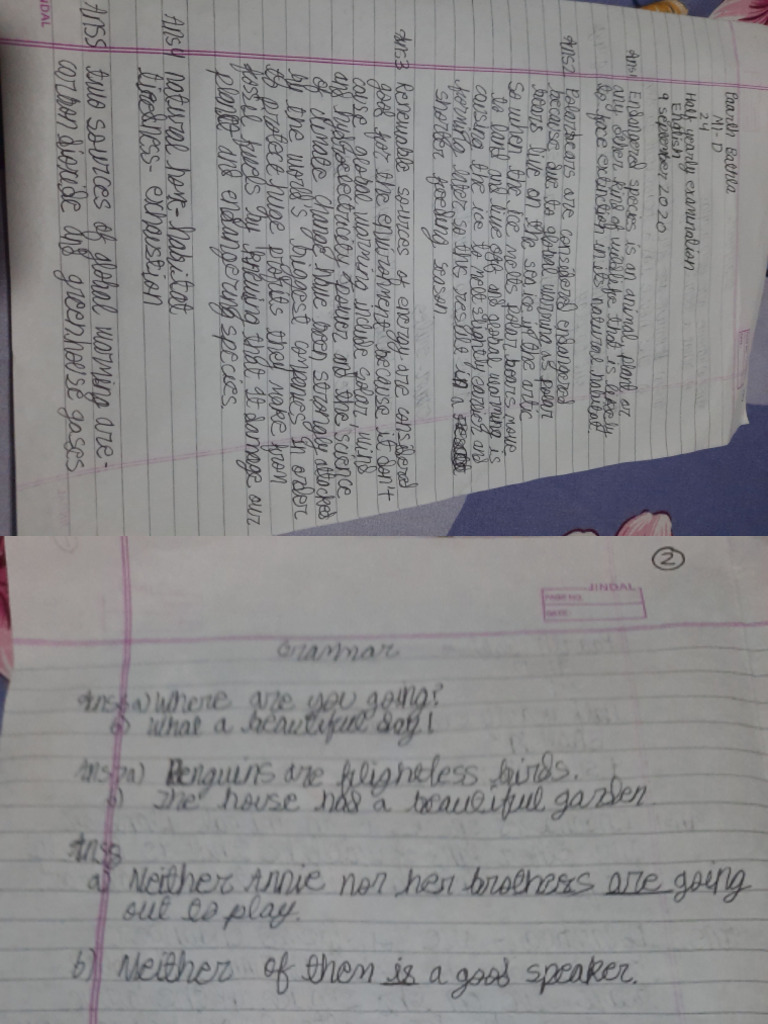 Paarth Bathla
24
MI-D
Half yearly examination
English
9 september 2020
Ans1 Endangered species is an animal, plant or
any other kind of wildlife that is likely
to face extinction in its natural habitat
Ans2 Polarbears are considered endangered
because due to global warming as polar
bears live on the sea ice of the artic
so when the ice melts polar bears move
to land and live off and global warming is
causing the ice to melt slightly earlier and
forming later so this result in a
shorter feeding season.
Ans3 Renewable sources of energy are considered
good for the environment because it don't
cause global warming include solar, wind
and hydroelectricity power and the science
of climate change have been strongly attacked
by the world's biggest companies in order
to protect huge profits they make from
fossil fuels by knowing that it damage our
planet and endangering species.
Ans4 natural home- habitat
tiredness- exhaustion
Ans5 two sources of global warming are-
carbon dioxide and greenhouse gases
JINDAL
2
JINDAL
PAGE NO.
DATE
Grammar
Ans6 a) Where are you going?
b) What a beautiful day!
Ans7 a) Penguins are flightless birds.
b) The house has a beautiful garden.
Ans8
a) Neither Annie nor her brothers are going
out to play.
b) Neither of them is a good speaker.